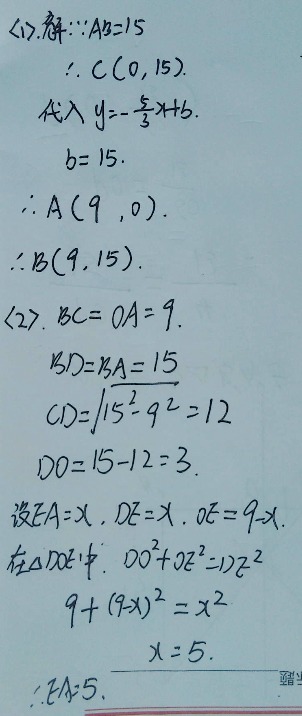 <1>.解:∵AB=15
∴C(0,15).
代入 y=-5/3x+b.
b=15.
∴A(9,0).
∴B(9,15).
<2>. BC=OA=9.
BD=BA=15
CD=√15²-9²=12
DO=15-12=3.
设EA=x. DE=x. OE=9-x.
在△DOE中. DO²+OE²=DE²
9+(9-x)²=x²
x=5.
∴EA=5.